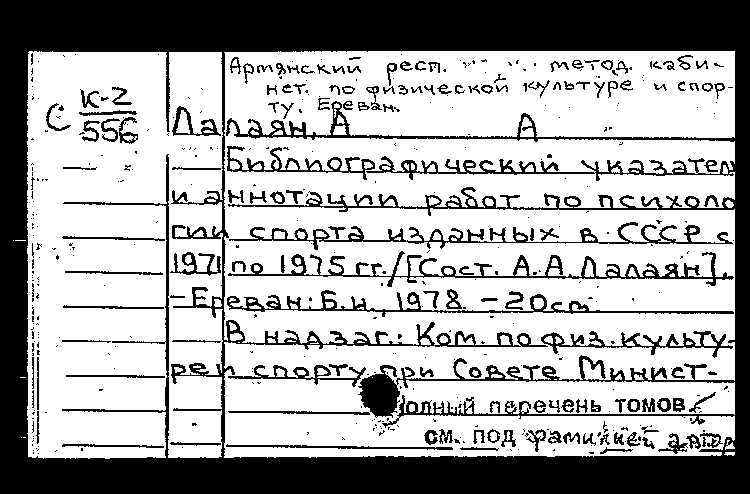 Армянский респ. метод. каби-
нет. по физической культуре и спор-
ту. Ереван.
С К-2
556
Лалаян, А А
Библиографический указатель
и аннотации работ по психоло
гии спорта изданных в СССР с
1971 по 1975 гг./[Сост. А.А.Лалаян].
-Ереван: Б.и., 1978 -20см.
В надзаг.: Ком. по физ. культу-
ре и спорту при Совете Минист-
олный перечень томов
см. под фамилией автор